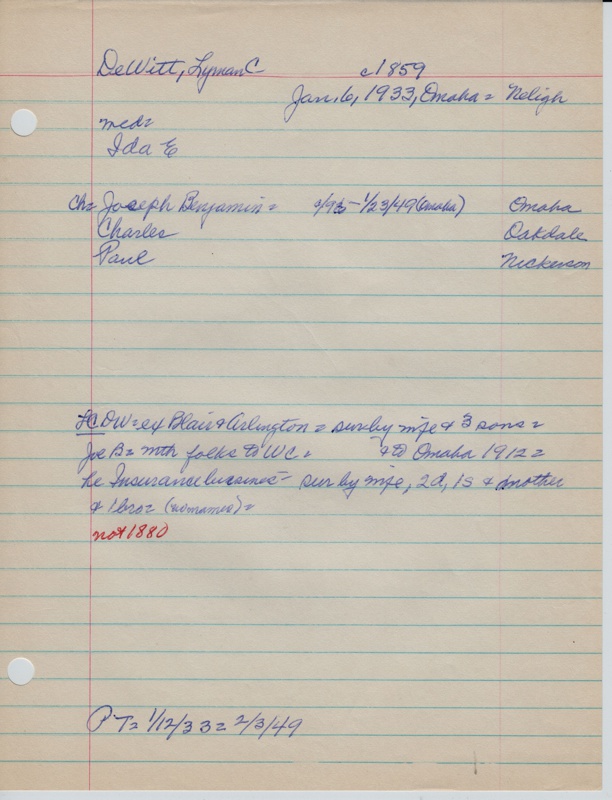 DeWitt, Lyman C c1859
Jan. 6, 1933, Omaha = Neligh
med=
Ida E
Ch= Joseph Benjamin = c/95 - 1/23/49 (Omaha) Omaha
Charles Oakdale
Paul Nickerson
LCDW = ex Blair & Arlington = sur by wife & 3 sons =
Joe B = with folks to WC = & to Omaha 1912 =
he Insurance business - sur by wife, 2d, 1s & mother
& 1 bro = (no names) =
not 1880
PT = 1/12/33 = 2/3/49